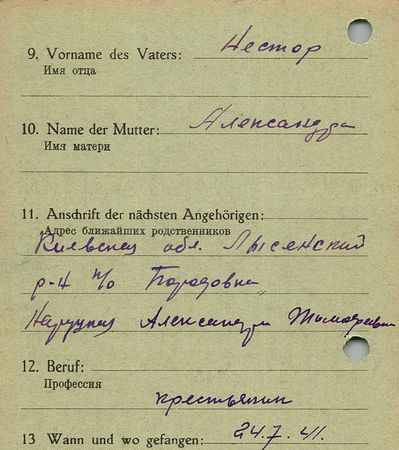 9. Vorname des Vaters: Нестор
Имя отца
10. Name der Mutter: Александра
Имя матери
11. Anschrift der nächsten Angehörigen:
Адрес ближайших родственников
Киевская обл. Лысенский
р-н п/о
Александра
12. Beruf:
Профессия
крестьянин
13 Wann und wo gefangen: 24.7.41.